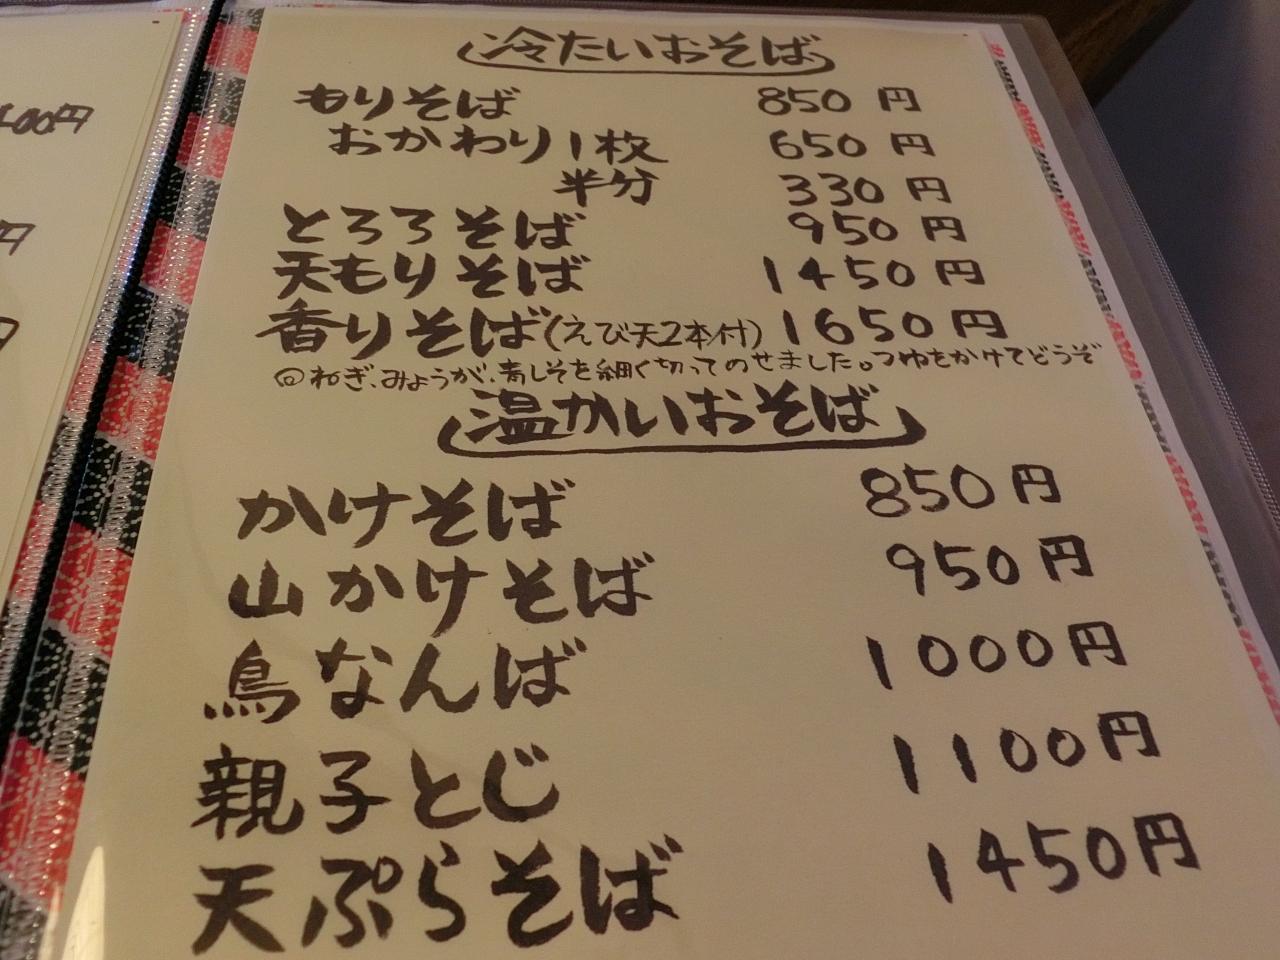 冷たいおそば
もりそば 850円
おかわり1枚 650円
半分 330円
とろろそば 950円
天もりそば 1450円
香りそば(えび天2本付) 1650円
◎ねぎ、みょうが、青しそを細く切ってのせました。つゆをかけてどうぞ
温かいおそば
かけそば 850円
山かけそば 950円
鳥なんば 1000円
親子とじ 1100円
天ぷらそば 1450円